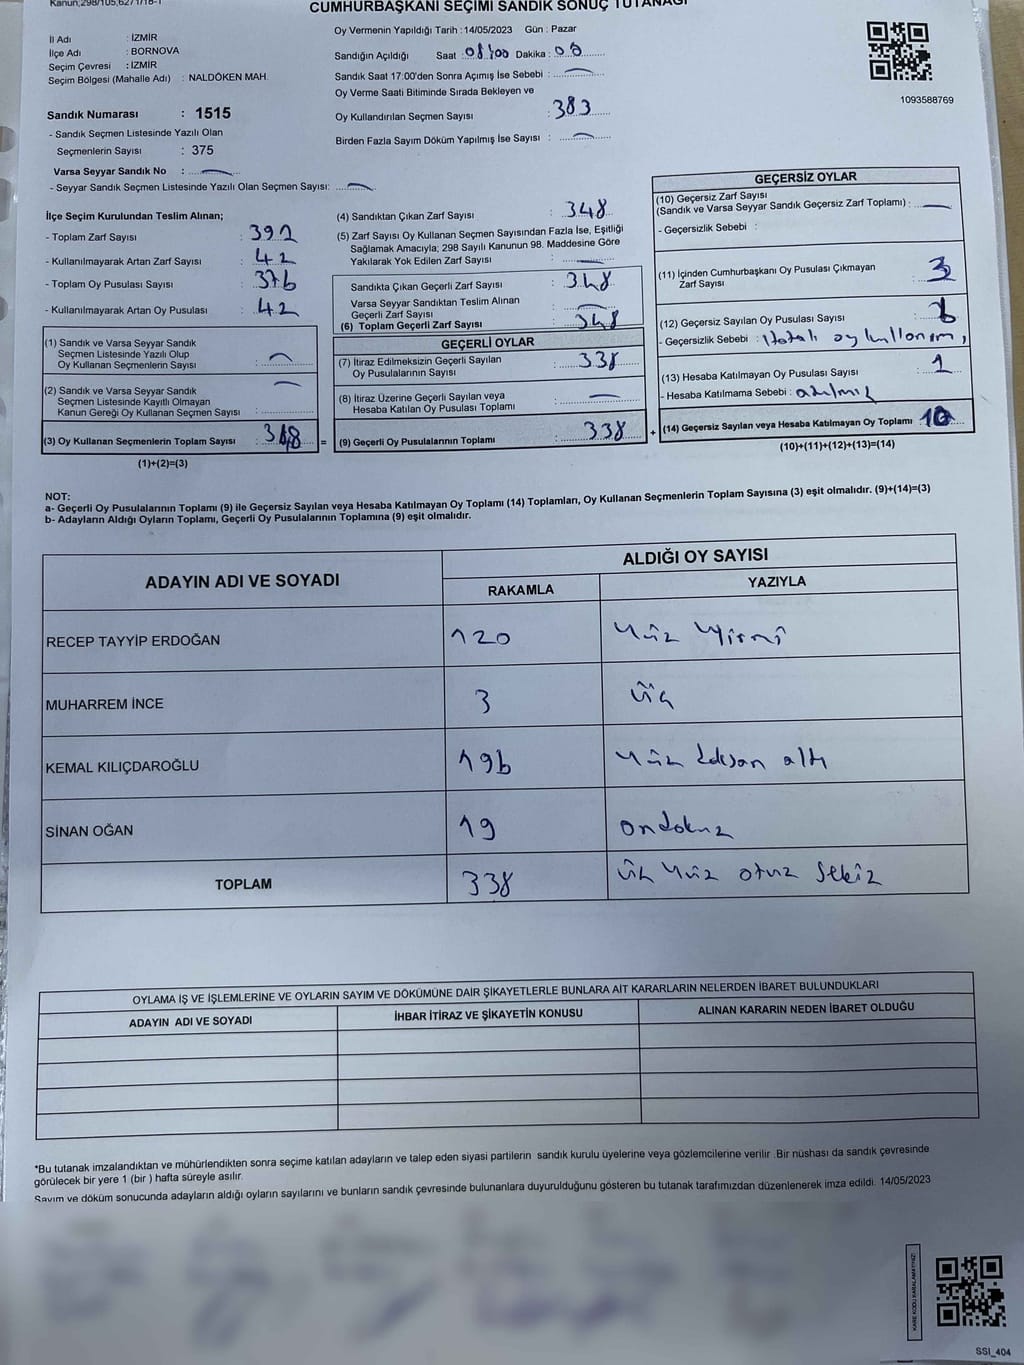 Kanun,298/105,62/1/18-1
CUMHURBAŞKANI SEÇİMİ SANDIK SONUÇ TUTANAĞI
İl Adı : İZMİR
İlçe Adı : BORNOVA
Seçim Çevresi : İZMİR
Seçim Bölgesi (Mahalle Adı) : NALDÖKEN MAH.
Oy Vermenin Yapıldığı Tarih :14/05/2023 Gün : Pazar
Sandığın Açıldığı Saat :08:00 Dakika : 00
Sandık Saat 17:00'den Sonra Açımış İse Sebebi : —
Oy Verme Saati Bitiminde Sırada Bekleyen ve
Oy Kullandırılan Seçmen Sayısı : 383
Birden Fazla Sayım Döküm Yapılmış İse Sayısı : —
1093588769
Sandık Numarası : 1515
- Sandık Seçmen Listesinde Yazılı Olan
Seçmenlerin Sayısı : 375
Varsa Seyyar Sandık No : —
- Seyyar Sandık Seçmen Listesinde Yazılı Olan Seçmen Sayısı: —
İlçe Seçim Kurulundan Teslim Alınan;
- Toplam Zarf Sayısı : 392
- Kullanılmayarak Artan Zarf Sayısı : 42
- Toplam Oy Pusulası Sayısı : 376
- Kullanılmayarak Artan Oy Pusulası : 42
(1) Sandık ve Varsa Seyyar Sandık
Seçmen Listesinde Yazılı Olup
Oy Kullanan Seçmenlerin Sayısı : —
(2) Sandık ve Varsa Seyyar Sandık
Seçmen Listesinde Kayıtlı Olmayan
Kanun Gereği Oy Kullanan Seçmen Sayısı : —
(3) Oy Kullanan Seçmenlerin Toplam Sayısı : 348 =
(1)+(2)=(3)
(4) Sandıktan Çıkan Zarf Sayısı : 348
(5) Zarf Sayısı Oy Kullanan Seçmen Sayısından Fazla İse, Eşitliği
Sağlamak Amacıyla; 298 Sayılı Kanunun 98. Maddesine Göre
Yakılarak Yok Edilen Zarf Sayısı : —
Sandıkta Çıkan Geçerli Zarf Sayısı : 348
Varsa Seyyar Sandıktan Teslim Alınan
Geçerli Zarf Sayısı : —
(6) Toplam Geçerli Zarf Sayısı : 348
GEÇERLİ OYLAR
(7) İtiraz Edilmeksizin Geçerli Sayılan
Oy Pusulalarının Sayısı : 338
(8) İtiraz Üzerine Geçerli Sayılan veya
Hesaba Katılan Oy Pusulası Toplamı : —
(9) Geçerli Oy Pusulalarının Toplamı : 338 +
GEÇERSİZ OYLAR
(10) Geçersiz Zarf Sayısı
(Sandık ve Varsa Seyyar Sandık Geçersiz Zarf Toplamı) : —
- Geçersizlik Sebebi :
(11) İçinden Cumhurbaşkanı Oy Pusulası Çıkmayan
Zarf Sayısı : 3
(12) Geçersiz Sayılan Oy Pusulası Sayısı : 6
- Geçersizlik Sebebi : Hatalı oy kullanım,
(13) Hesaba Katılmayan Oy Pusulası Sayısı : 1
- Hesaba Katılmama Sebebi :
(14) Geçersiz Sayılan veya Hesaba Katılmayan Oy Toplamı : 10
(10)+(11)+(12)+(13)=(14)
NOT:
a- Geçerli Oy Pusulalarının Toplamı (9) ile Geçersiz Sayılan veya Hesaba Katılmayan Oy Toplamı (14) Toplamları, Oy Kullanan Seçmenlerin Toplam Sayısına (3) eşit olmalıdır. (9)+(14)=(3)
b- Adayların Aldığı Oyların Toplamı, Geçerli Oy Pusulalarının Toplamına (9) eşit olmalıdır.
ADAYIN ADI VE SOYADI
ALDIĞI OY SAYISI
RAKAMLA YAZIYLA
RECEP TAYYİP ERDOĞAN 120 yüz yirmi
MUHARREM İNCE 3 üç
KEMAL KILIÇDAROĞLU 196 yüz doksan altı
SİNAN OĞAN 19 ondokuz
TOPLAM 338 üç yüz otuz sekiz
OYLAMA İŞ VE İŞLEMLERİNE VE OYLARIN SAYIM VE DÖKÜMÜNE DAİR ŞİKAYETLERLE BUNLARA AİT KARARLARIN NELERDEN İBARET BULUNDUKLARI
ADAYIN ADI VE SOYADI İHBAR İTİRAZ VE ŞİKAYETİN KONUSU ALINAN KARARIN NEDEN İBARET OLDUĞU
*Bu tutanak imzalandıktan ve mühürlendikten sonra seçime katılan adayların ve talep eden siyasi partilerin sandık kurulu üyelerine veya gözlemcilerine verilir .Bir nüshası da sandık çevresinde
görülecek bir yere 1 (bir ) hafta süreyle asılır.
Sayım ve döküm sonucunda adayların aldığı oyların sayılarını ve bunların sandık çevresinde bulunanlara duyurulduğunu gösteren bu tutanak tarafımızdan düzenlenerek imza edildi. 14/05/2023
KARE KODU KARALAMAYINIZ!
SSI_404